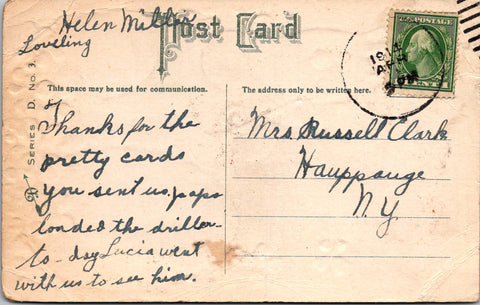 Helen Miller
Post Card
Loveling
U.S. POSTAGE
1914
PM
SERIES D. No. 3.
This space may be used for communication.
The address only to be written here.
Thanks for the
pretty cards
you sent us, papa
loaded the driller
to-day Lucia went
with us to see him.
Mrs Russell Clark
Hauppauge
N.Y